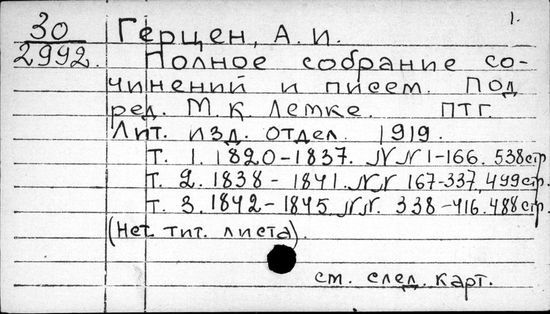 1.
30 Герцен, А. И.
2992. Полное собрание со-
чинений и писем. Под
ред. М. К. Лемке. ПТГ.
Лит. изд. отдел. 1919.
т. 1. 1820-1837. NN 1-166. 538стр.
т. 2. 1838-1841. NN 167-337, 499стр.
т. 3. 1842-1845 NN. 338-416. 488стр.
(Нет тит. листа).
см. след. карт.